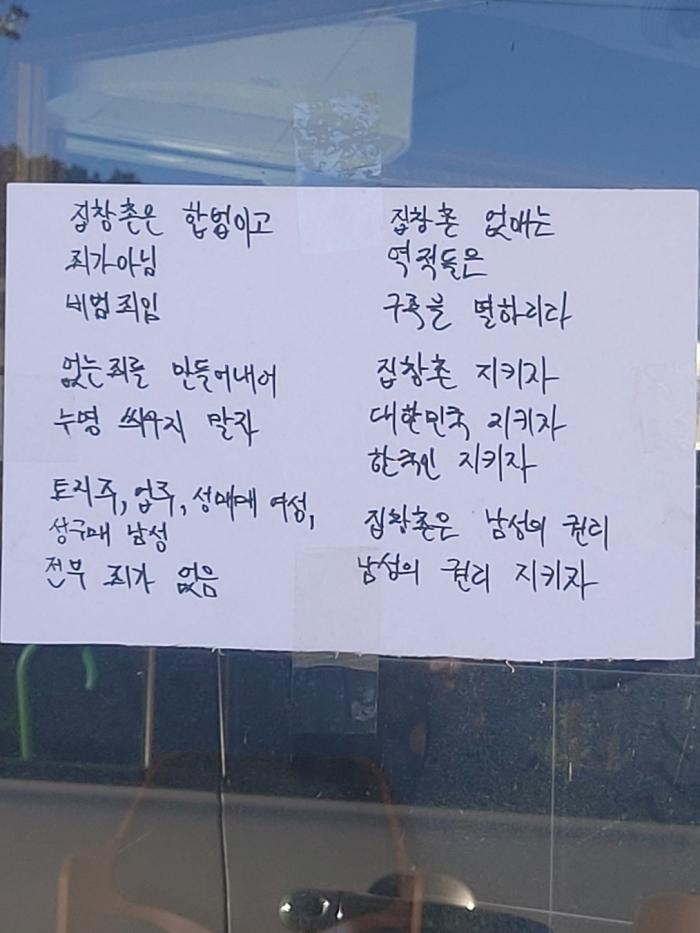 집창촌은 합법이고
죄가아님
비범죄임
없는죄를 만들어내어
누명 씌우지 말자
토지주, 업주, 성매매 여성,
성구매 남성
전부 죄가 없음
집창촌 없애는
역적들은
구족을 멸하리라
집창촌 지키자
대한민국 지키자
한국인 지키자
집창촌은 남성의 권리
남성의 권리 지키자